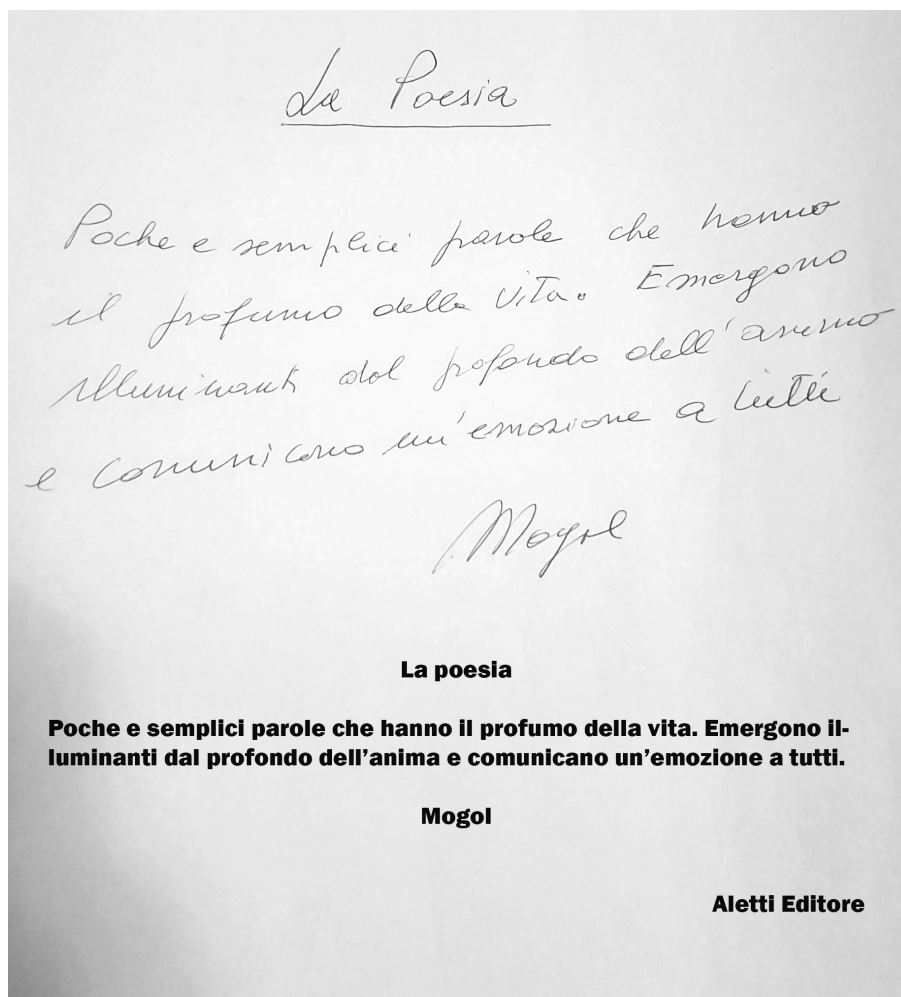 La Poesia
Poche e semplici parole che hanno
il profumo della vita. Emergono
illuminanti dal profondo dell'animo
e comunicano un'emozione a tutti
Mogol
La poesia
Poche e semplici parole che hanno il profumo della vita. Emergono il-
luminanti dal profondo dell’anima e comunicano un’emozione a tutti.
Mogol
Aletti Editore